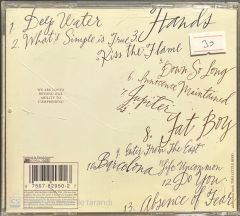 1. Deep Water
2. What's Simple is True
3. Hands
4. Kiss the Flame
5. Down So Long
6. Innocence Maintained
7. Jupiter
8. Fat Boy
9. Enter From The East
10. Barcelona
11. Life Uncommon
12. Do You
13. Absence of Fear
30
WE ARE LOVED
BEYOND OUR
ABILITY TO
COMPREHEND
7567-82950-2